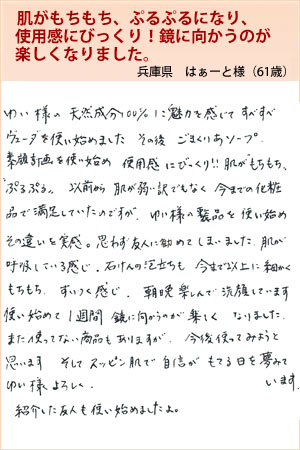 肌がもちもち、ぷるぷるになり、
使用感にびっくり！鏡に向かうのが
楽しくなりました。
兵庫県　はぁーと様（61歳）
ゆい様の 天然成分100%に魅力を感じて すべすべ
ヴェーダを使い始めました その後 ごまくりあソープ.
素顔計画を使い始め 使用感 にびっくり!! 肌がもちもち、
ぷるぷる。 以前から 肌が弱い訳でもなく 今までの化粧
品で満足していたのですが、ゆい様の製品を使い始め
その違いを実感。思わず友人に勧めてしまいました. 肌が
呼吸している感じ. 石けんの泡立ちも 今まで以上に細かく
もちもち. すいつく感じ. 朝晩楽しんで洗顔しています
使い始めて 1週間 鏡に向かうのが 楽しく なりました.
まだ使ってない商品もありますが、今後使ってみようと
思います そして スッピン肌で 自信が もてる日を夢みて
ゆい様よろしく. います.
紹介した友人も使い始めましたよ。